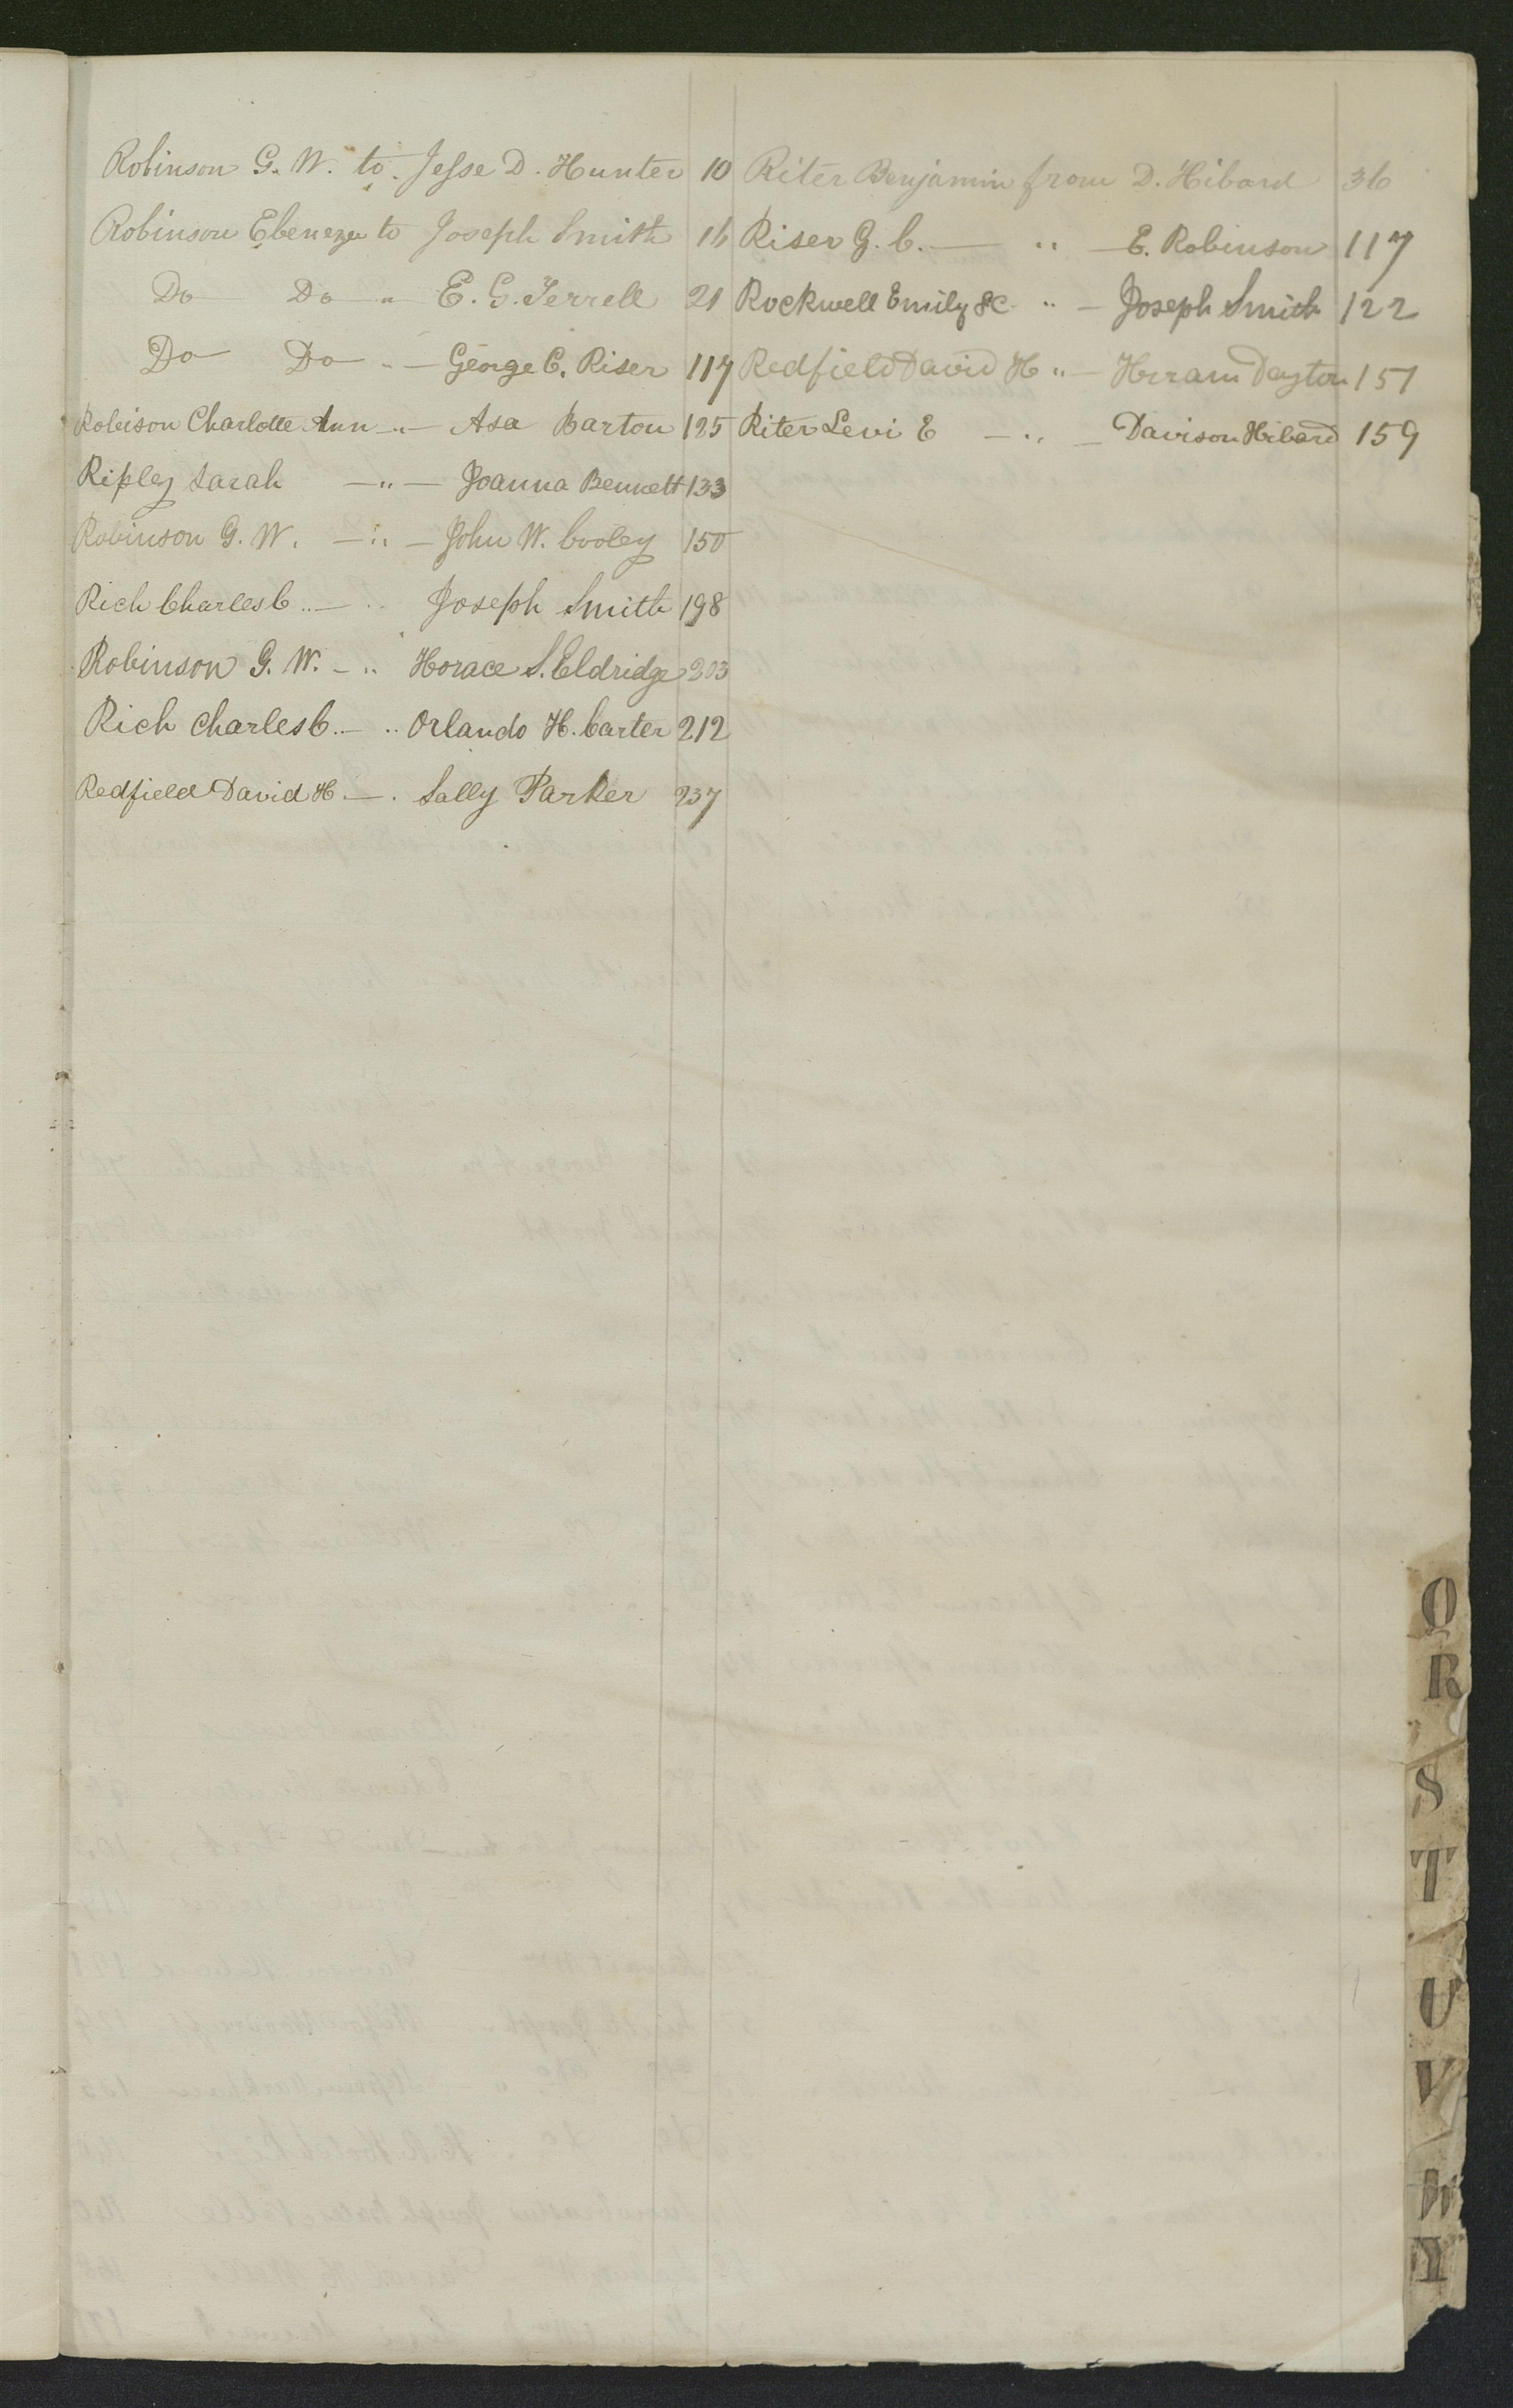 Robinson G. W. to Jesse D. Hunter 10
Robinson Ebenezer to Joseph Smith 16
Do Do " E. G. Terrell 21
Do Do " — George C. Riser 117
Robison Charlotte Ann — " — Asa Barton 125
Ripley Sarah — " — Joanna Bennett 133
Robinson G. W. — " — John W. Cooley 150
Rich Charles C. — " Joseph Smith 198
Robinson G. W. — " Horace S. Eldridge 203
Rich Charles C. — " Orlando H. Carter 212
Redfield David H. — " Sally Parker 237
Riter Benjamin from D. Hibard 36
Riser G. C. — " — E. Robinson 117
Rockwell Emily &C " — Joseph Smith 122
Redfield David H " — Hiram Dayton 151
Riter Levi E — " — Davison Hibard 159
Q
R
S
T
U
V
W
Y